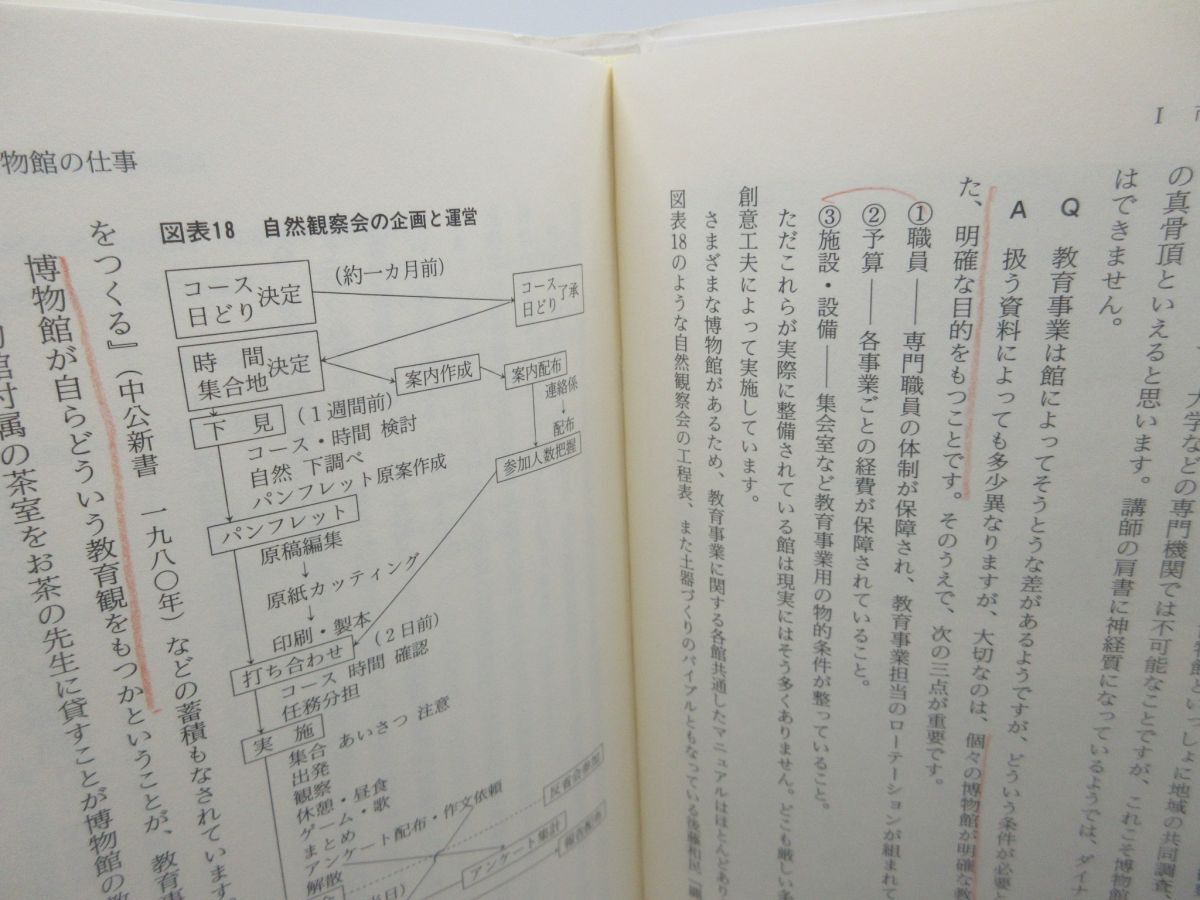 I
の真骨頂といえると思います。講師の肩書に神経質になっているようでは、ダイナ
はできません。
Q 教育事業は館によってそうとうな差があるようですが、どういう条件が必要と
A 扱う資料によっても多少異なりますが、大切なのは、個々の博物館が明確な教
た、明確な目的をもつことです。そのうえで、次の三点が重要です。
①職員――専門職員の体制が保障され、教育事業担当のローテーションが組まれて
②予算――各事業ごとの経費が保障されていること。
③施設・設備――集会室など教育事業用の物的条件が整っていること。
ただこれらが実際に整備されている館は現実にはそう多くありません。どこも厳しい条
創意工夫によって実施しています。
さまざまな博物館があるため、教育事業に関する各館共通したマニュアルはほとんどあり
図表18のような自然観察会の工程表、また土器づくりのバイブルともなっている後藤和民『縄
物館の仕事
図表18 自然観察会の企画と運営
コース
日どり 決定
(約一カ月前)
コース
日どり 了承
時間
集合地 決定
案内作成
案内配布
連絡係
↓
配布
参加人数把握
下見
(1週間前)
コース・時間 検討
自然 下調べ
パンフレット原案作成
パンフレット
原稿編集
↓
原紙カッティング
↓
印刷・製本
打ち合わせ
(2日前)
コース 時間 確認
任務分担
実施
集合 あいさつ 注意
出発
観察
休憩・昼食
ゲーム・歌
まとめ
アンケート配布・作文依頼
解散
反省会参加
アンケート集計
をつくる』(中公新書 一九八〇年)などの蓄積もなされています
博物館が自らどういう教育観をもつかということが、教育事
館付属の茶室をお茶の先生に貸すことが博物館の教